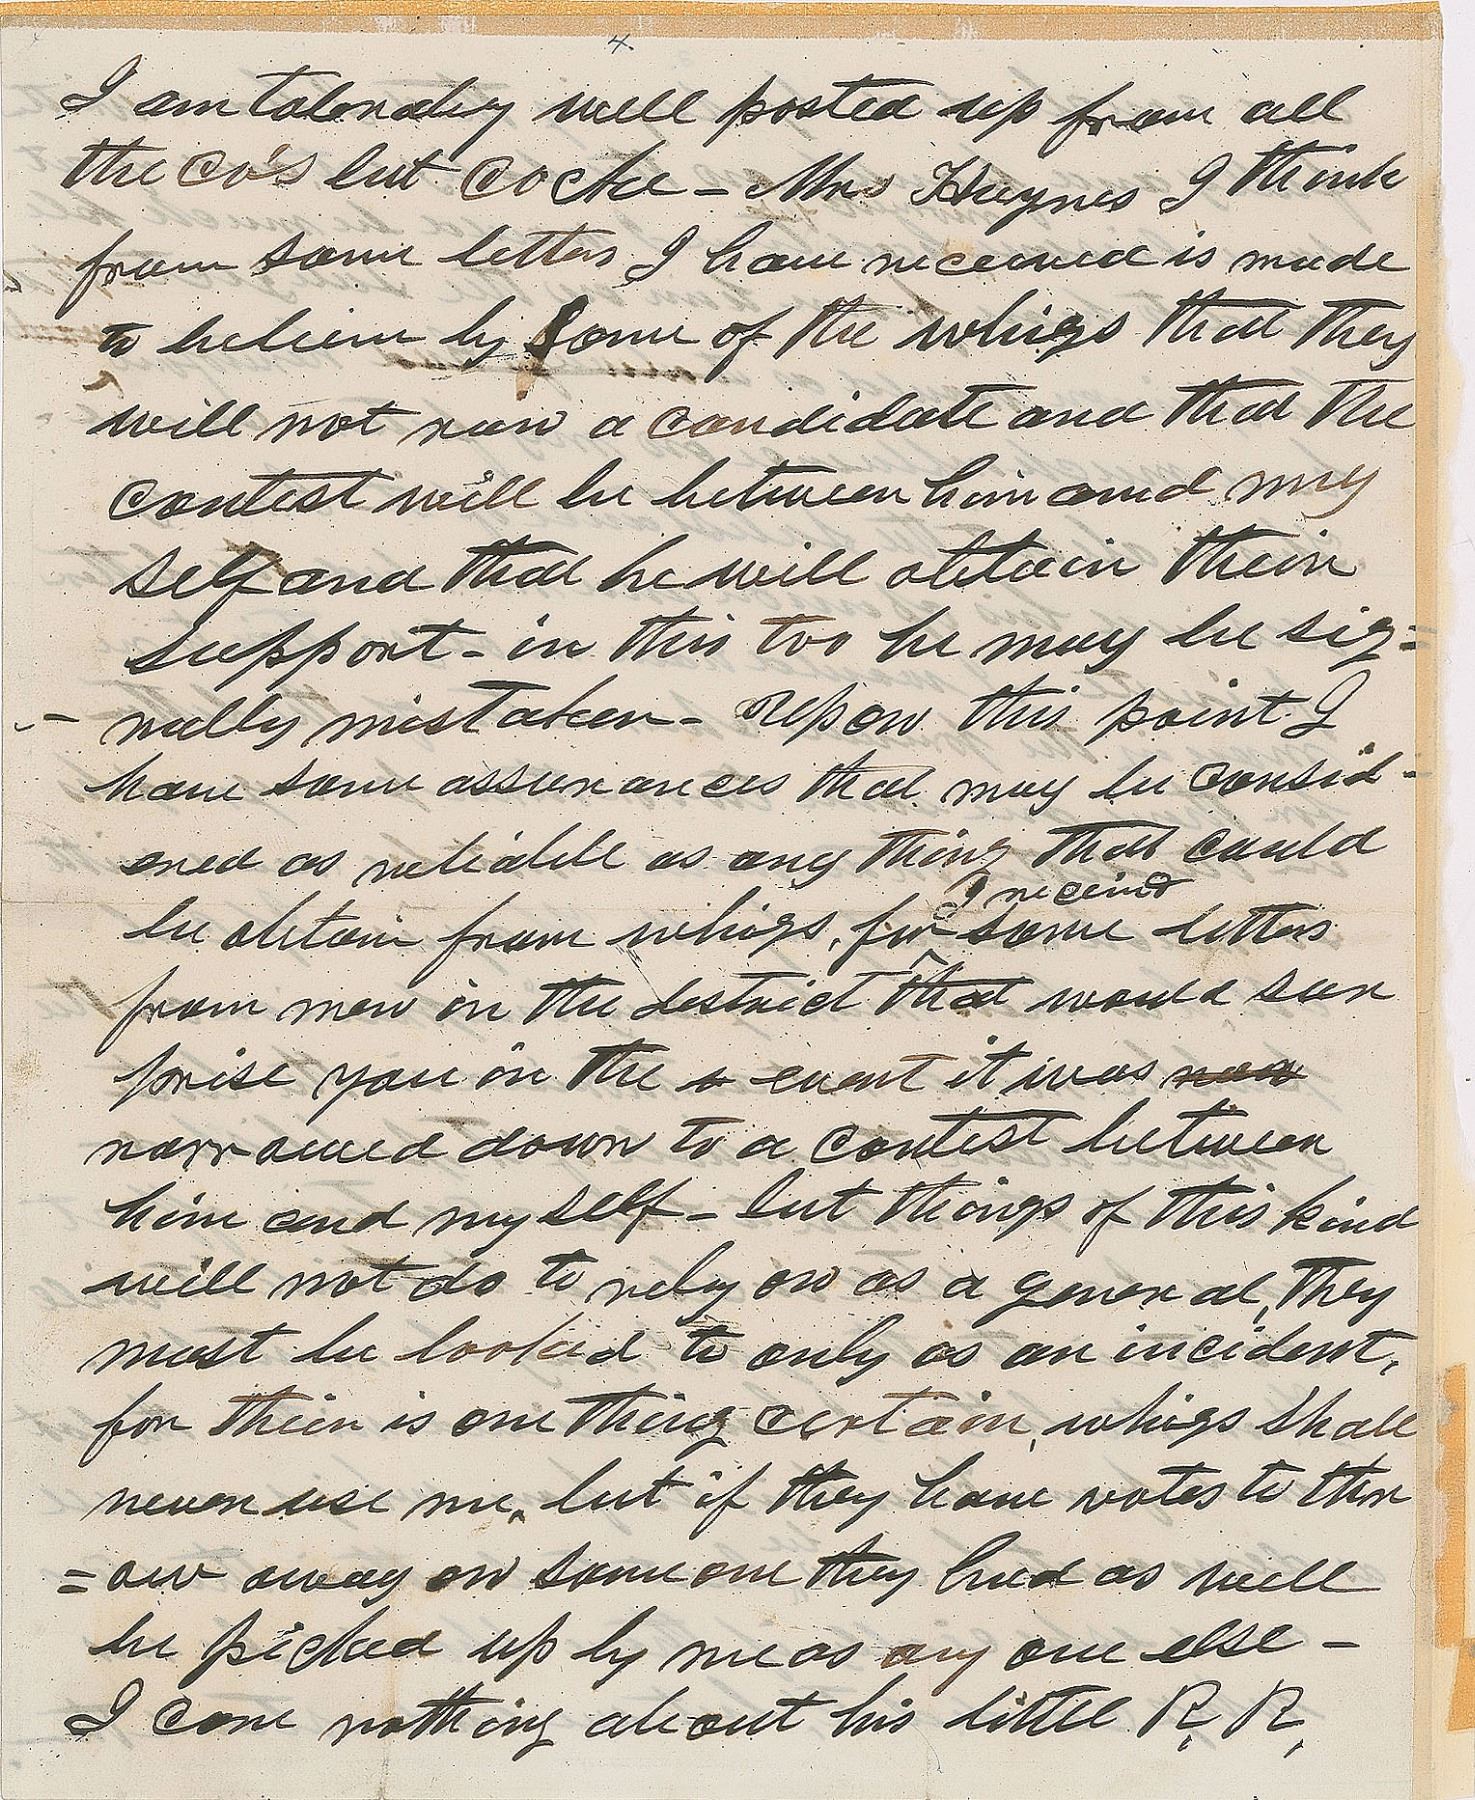 4.
I am tolerabley well posted up from all
the Co's but Cocke – Mr Haynes I think
from some letters I have received is made
to believe by some of the whigs that they
will not run a candidate and that the
contest will be between him and my
self and that he will obtain their
support – in this too he may be sig=
-nally mistaken – upon this point I
have some assurances that may be consid-
ered as reliable as any thing that could
I receivd
be obtain from whigs, for some letters
from men in the district that would sur
prise you in the e event it was
narrowed down to a contest between
him and myself – but things of this kind
will not do to rely on as a general, they
must be looked to only as an incident,
for their is one thing certain, whigs shall
never use me, but if they have votes to thr
=ow away on some one they had as well
be picked up by me as any one else –
I care nothing about his little R, R,